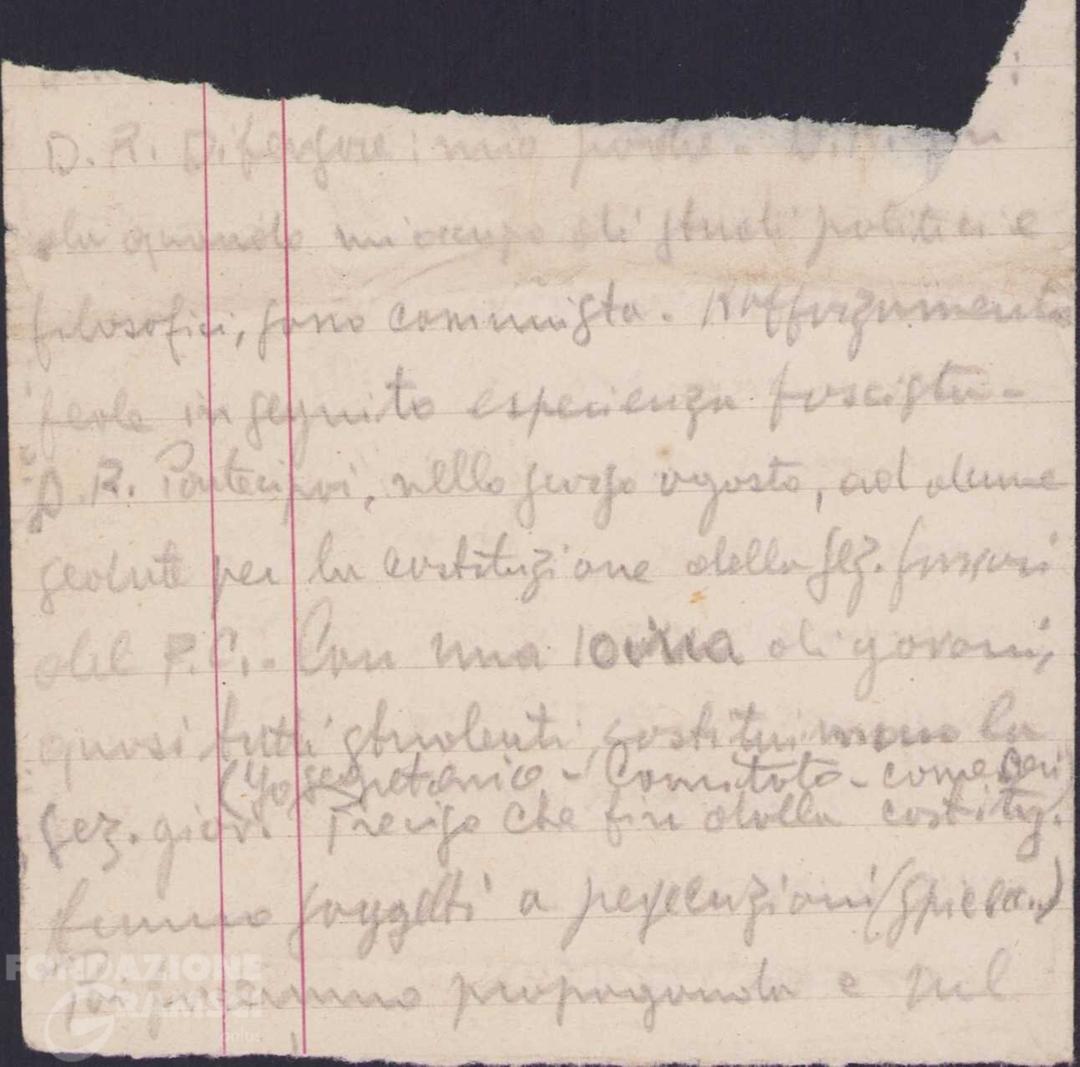 D. R. Difensore: mio padre - D. R. Fin
da quando mi occupo di studi politici e
filosofici, sono comunista. Rafforzamento
fede in seguito esperienza fascista -
D. R. Partecipai, nello scorso agosto, ad alcune
sedute per la costituzione della Sez. Sassari
del P.C. - Con una 10ina di giovani,
quasi tutti studenti costituimmo la
(Io segretario - Comitato - come
Sez. giov. Preciso che fin dalla costituz.
fummo soggetti a persecuzioni
propaganda e nel
FONDAZIONE
GRAMSCI
onlus